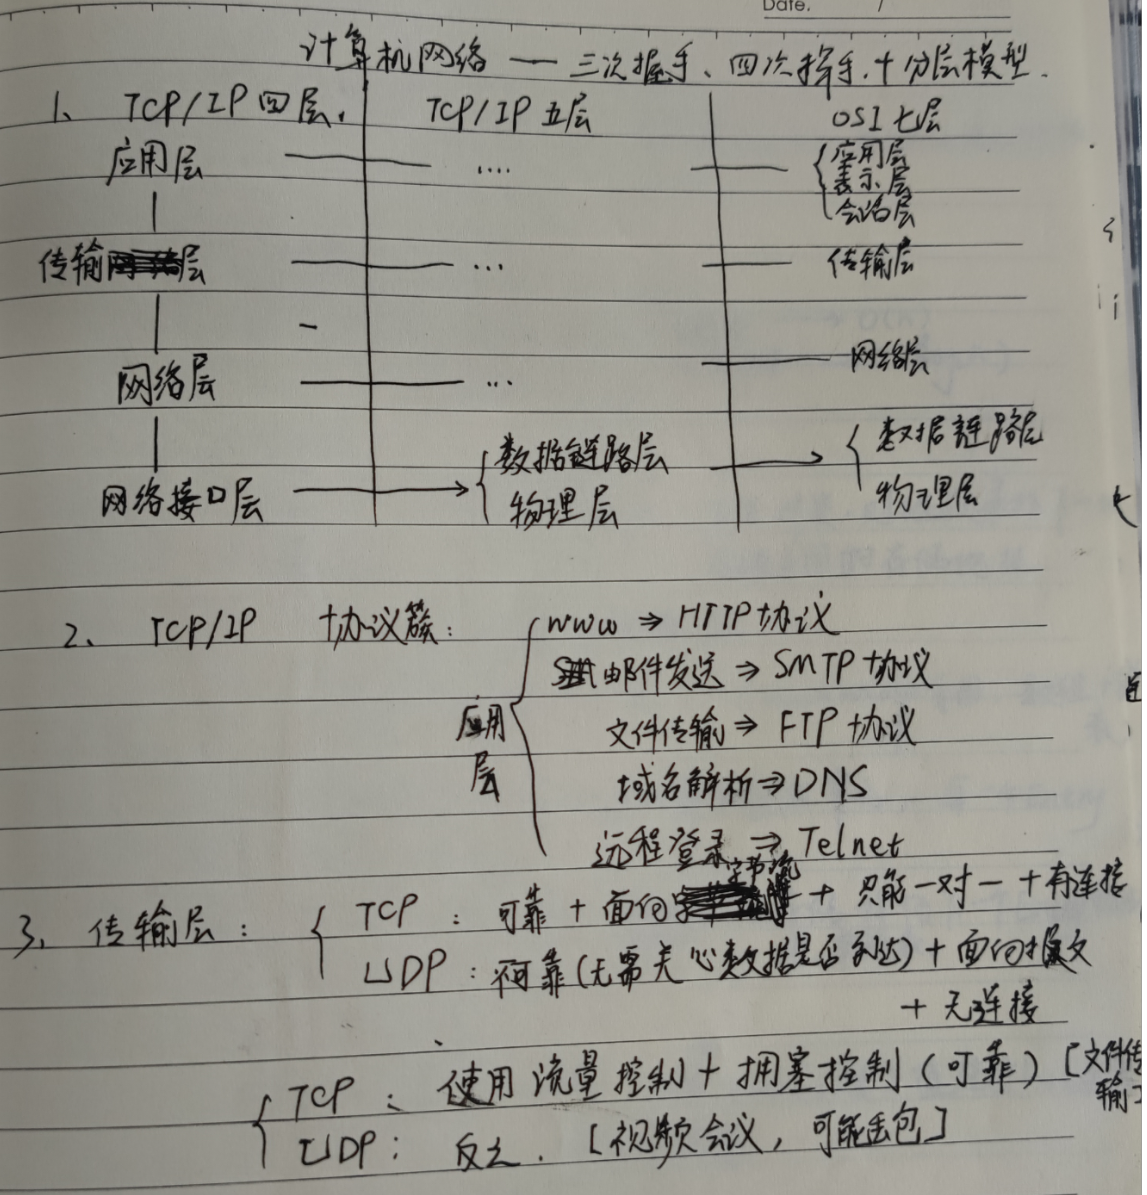 Date. /
计算机网络 — 三次握手、四次挥手.十分层模型.
1、 TCP/IP 四层. TCP/IP 五层 OSI 七层
应用层 .... 应用层
表示层
会话层
传输层 ... 传输层
网络层 ... 网络层
网络接口层 数据链路层 数据链路层
物理层 物理层
2、 TCP/IP 协议簇:
www ⇒ HTTP协议
邮件发送 ⇒ SMTP协议
应用层
文件传输 ⇒ FTP协议
域名解析 ⇒ DNS
远程登录 ⇒ Telnet
3、传输层: TCP : 可靠 + 面向字节流 + 只能一对一 + 有连接
UDP : 不可靠(无需关心数据是否到达) + 面向报文
+ 无连接
TCP : 使用流量控制 + 拥塞控制 (可靠) [文件传输]
UDP : 反之. [视频会议, 可能丢包]